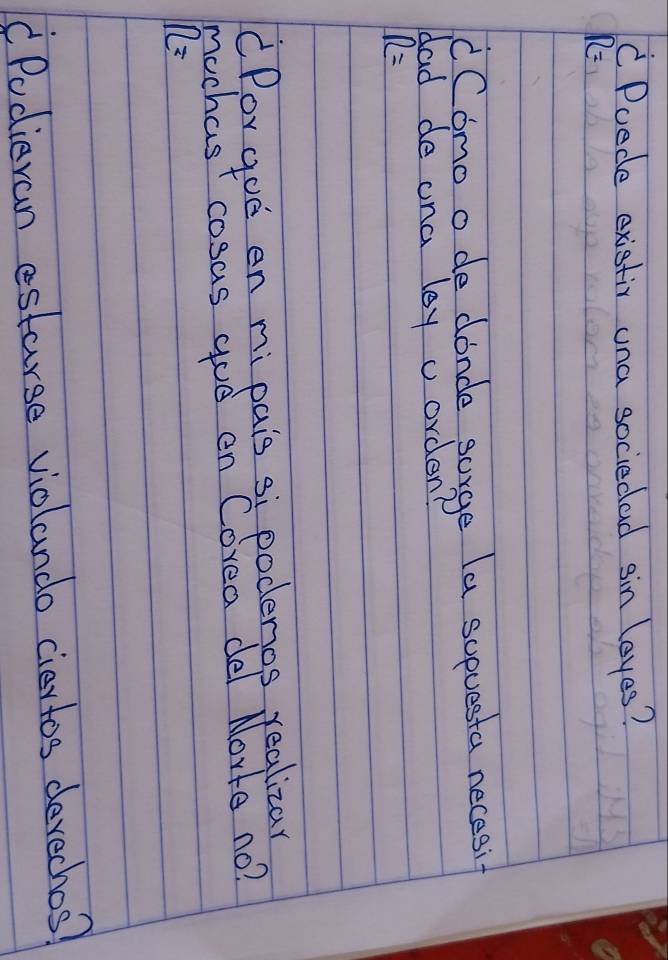 ¿Puede existir una sociedad sin leyes?
R=
¿Cómo o de dónde surge la supuesta necesi-
dad de una ley u orden?
R=
¿Por qué en mi país si podemos realizar
muchas cosas que en Corea del Norte no?
R=
¿Pudieran estarse violando ciertos derechos?